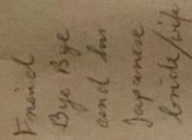 Friend
Bye Bye
and his
Japanese
bride/wife